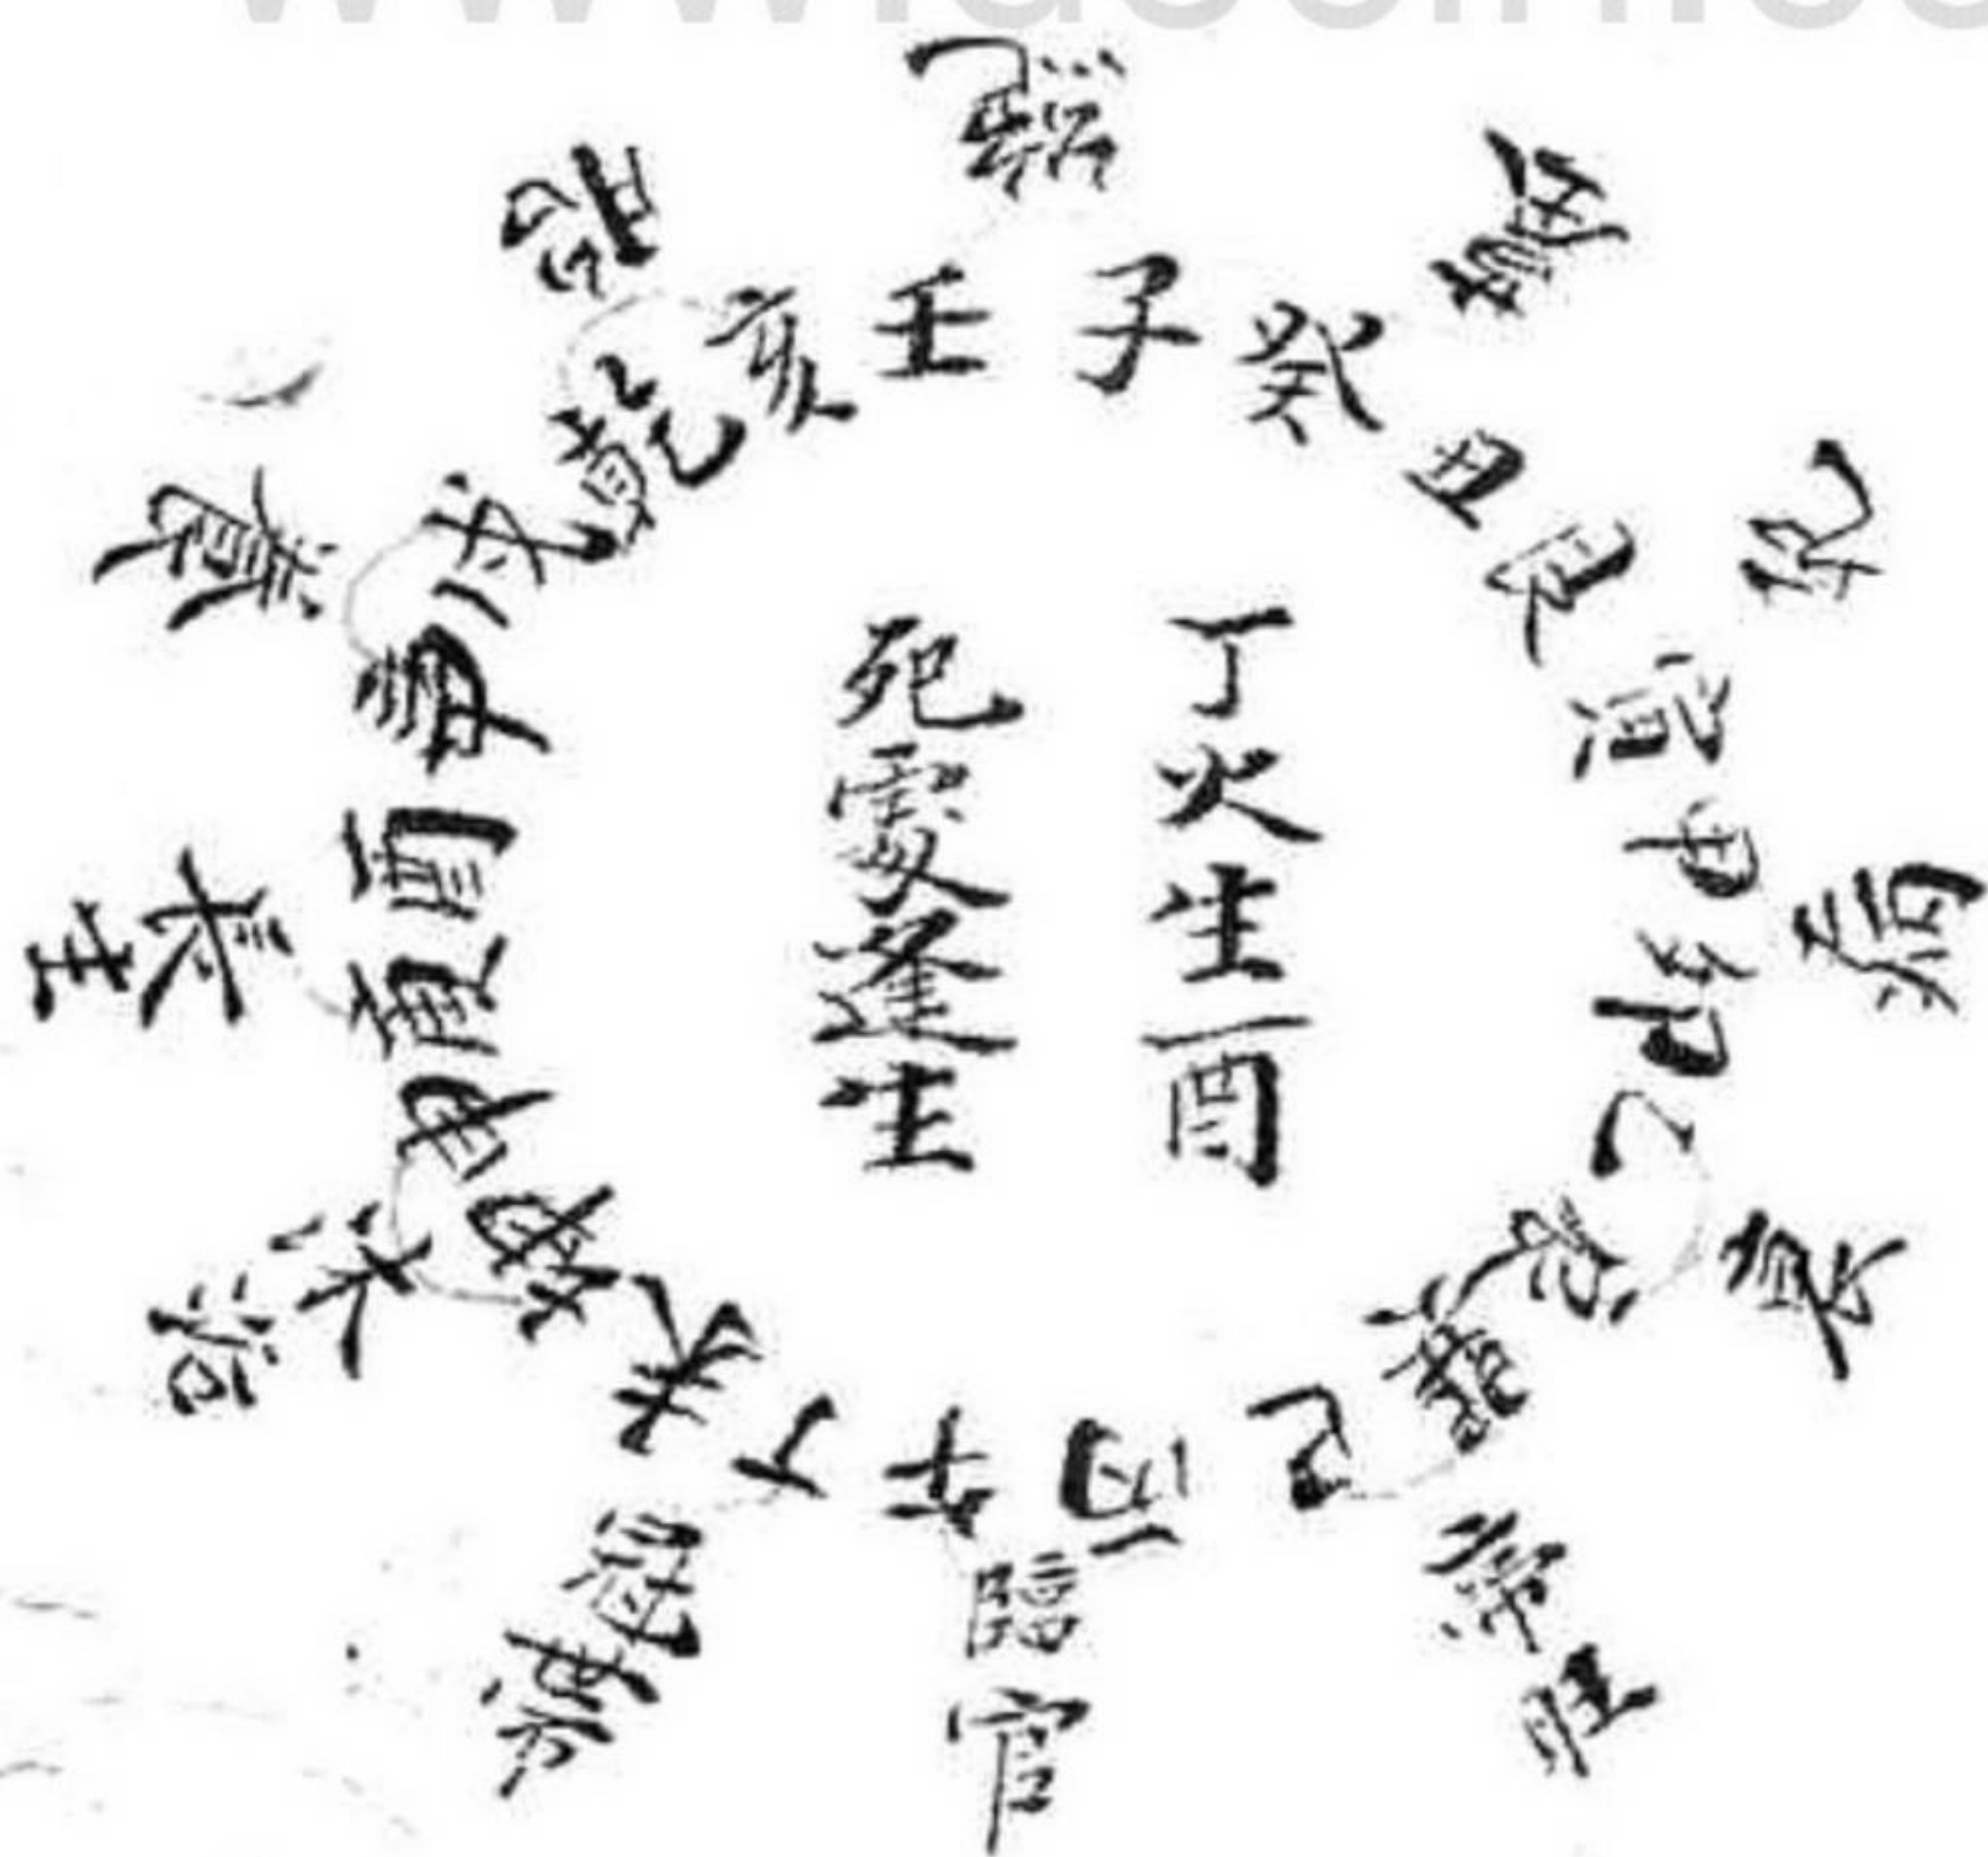 丁火生酉
死處逢生
壬子癸丑艮寅甲卯乙辰巽巳丙午丁未坤申庚酉辛戌乾亥
絕
墓
死
病
衰
帝旺
臨官
冠帶
沐浴
長生
養
胎